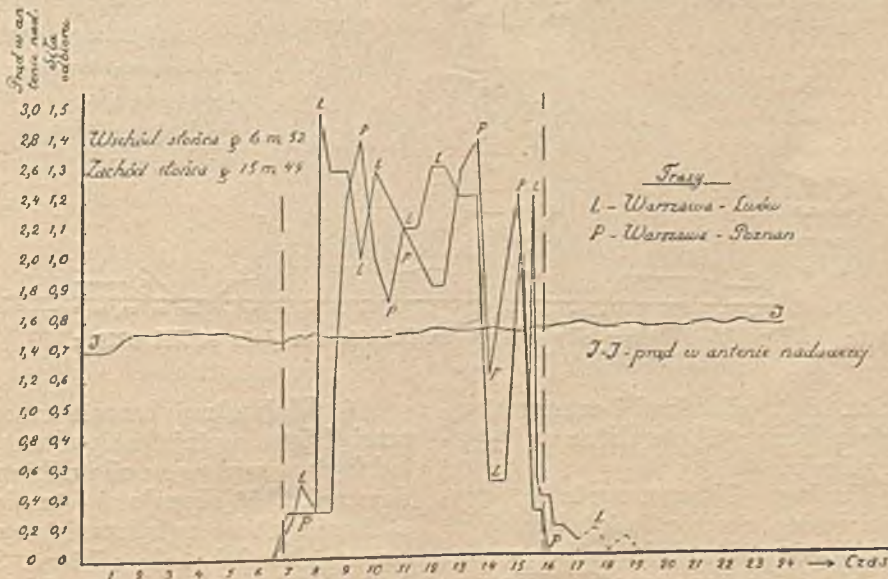 Prąd w an
tenie nad.
Siła
odbioru
3,0 1,5
2,8 1,4
2,6 1,3
2,4 1,2
2,2 1,1
2,0 1,0
1,8 0,9
1,6 0,8
1,4 0,7
1,2 0,6
1,0 0,5
0,8 0,4
0,6 0,3
0,4 0,2
0,2 0,1
0 0
Wschód słońca g 6 m 52
Zachód słońca g 15 m 49
Trasy
L - Warszawa - Lwów
P - Warszawa - Poznań
J-J - prąd w antenie nadawczej
J
J
L
P
L
L
P
L
P
L
P
P
L
P
L
L
P
P
L
1 2 3 4 5 6 7 8 9 10 11 12 13 14 15 16 17 18 19 20 21 22 23 24 → Czas